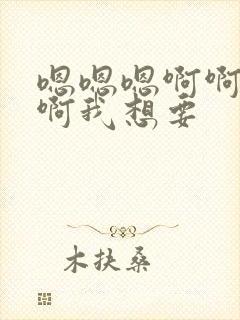 嗯嗯嗯啊啊
啊我想要
木扶桑